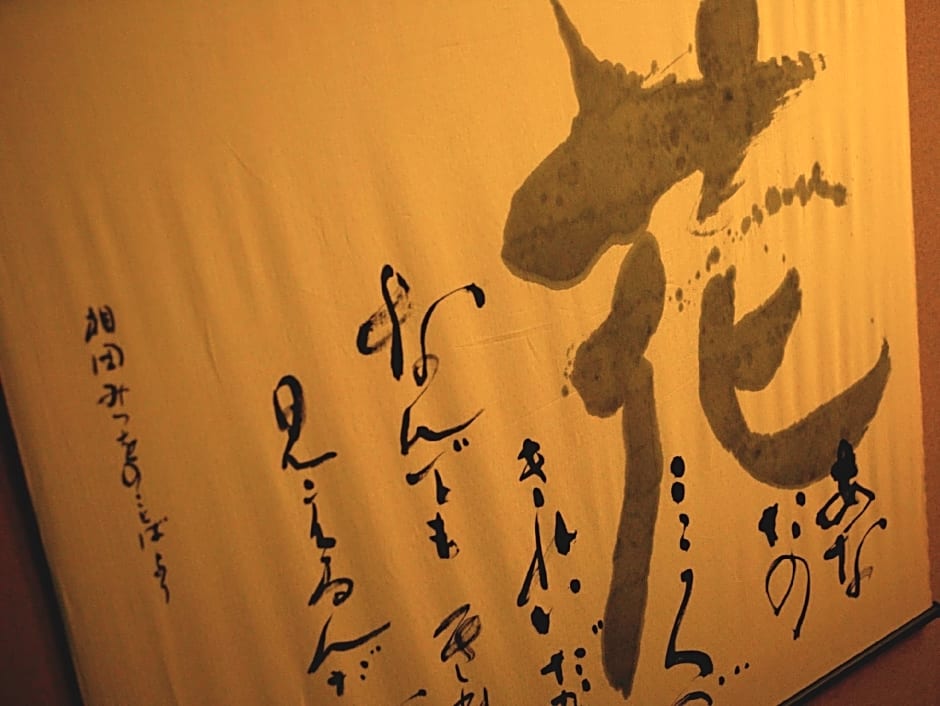 花
あなたの
こころが
きれいだか
なんでも きれ
見えるんだ
相田みつをのことばより